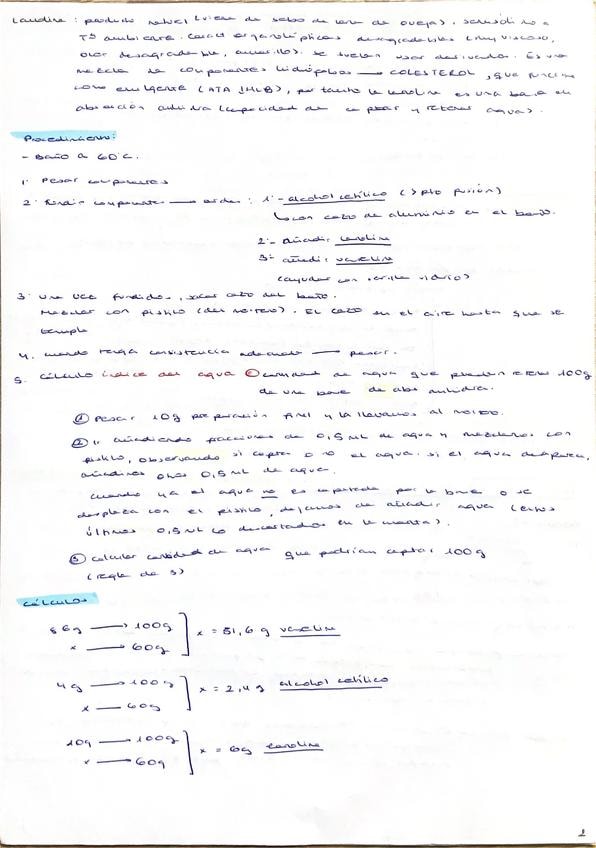 Lanolina: producto natural (viene de sebo de lana de oveja). Semisólido a
Tª ambiente. Caract organolépticas desagradables (muy viscoso,
olor desagradable, amarillo). Se suelen usar derivados. Es una
mezcla de componentes hidrófobos → COLESTEROL, que funciona
como emulgente (ATA ↓HLB), por tanto la lanolina es una base de
absorción anhidra (capacidad de captar y retener agua).
Procedimiento:
- Baño a 60ºC.
1. Pesar componentes
2. Fundir componentes → orden: 1º- alcohol cetílico (>pto fusión)
↳ con cazo de aluminio en el baño.
2º- Añadir lanolina
3º- añadir vaselina
(ayudar con varilla vidrio)
3. Una vez fundidos, sacar cazo del baño.
Mezclar con pistilo (del mortero). El cazo en el aire hasta que se
temple
4. cuando tenga consistencia adecuada → pesar.
5. Cálculo índice del agua cantidad de agua que pueden retener 100g
de una base de abs anhidra.
① Pesar 10g preparación final y la llevamos al mortero.
② Ir añadiendo fracciones de 0,5 mL de agua y mezclamos con
pistilo, observando si capta o no el agua. si el agua desaparece,
añadimos otros 0,5 mL de agua.
Cuando ya el agua no es captada por la base o se
desplaza con el pistilo, dejamos de añadir agua (estos
últimos 0,5 mL descartados en la cuenta).
③ calcular cantidad de agua que podrían captar 100g
(regla de 3)
Cálculos
86g → 100g
x → 60g
x = 51,6 g vaselina
4g → 100g
x → 60g
x = 2,4 g alcohol cetílico
10g → 100g
x → 60g
x = 6g lanolina
1